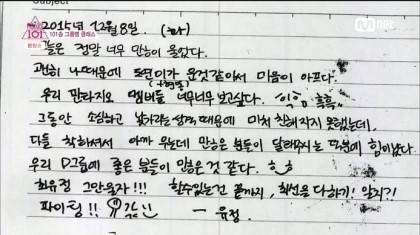 Subject
PRODUCE 101
101송 그룹별 클래스
Mnet
2015년 12월 8일. (화)
오늘은 정말 너무 많이 울었다.
괜히 나때문에 이가 운것같아서 마음이 아프다.
우리 판타지오 멤버들 너무너무 보고싶다. 흑흑
그동안 소심하고 낯가리는 성격 때문에 미처 친해지지 못했는데,
다들 착하셔서 아까 우는데 많은 분들이 달래주시는 덕분에 힘이났다.
우리 D그룹에 좋은 분들이 많은것 같다.
최유정 그만울자!!! 할수있는건 끝까지, 최선을 다하기! 알지?!
파이팅!!
- 유정